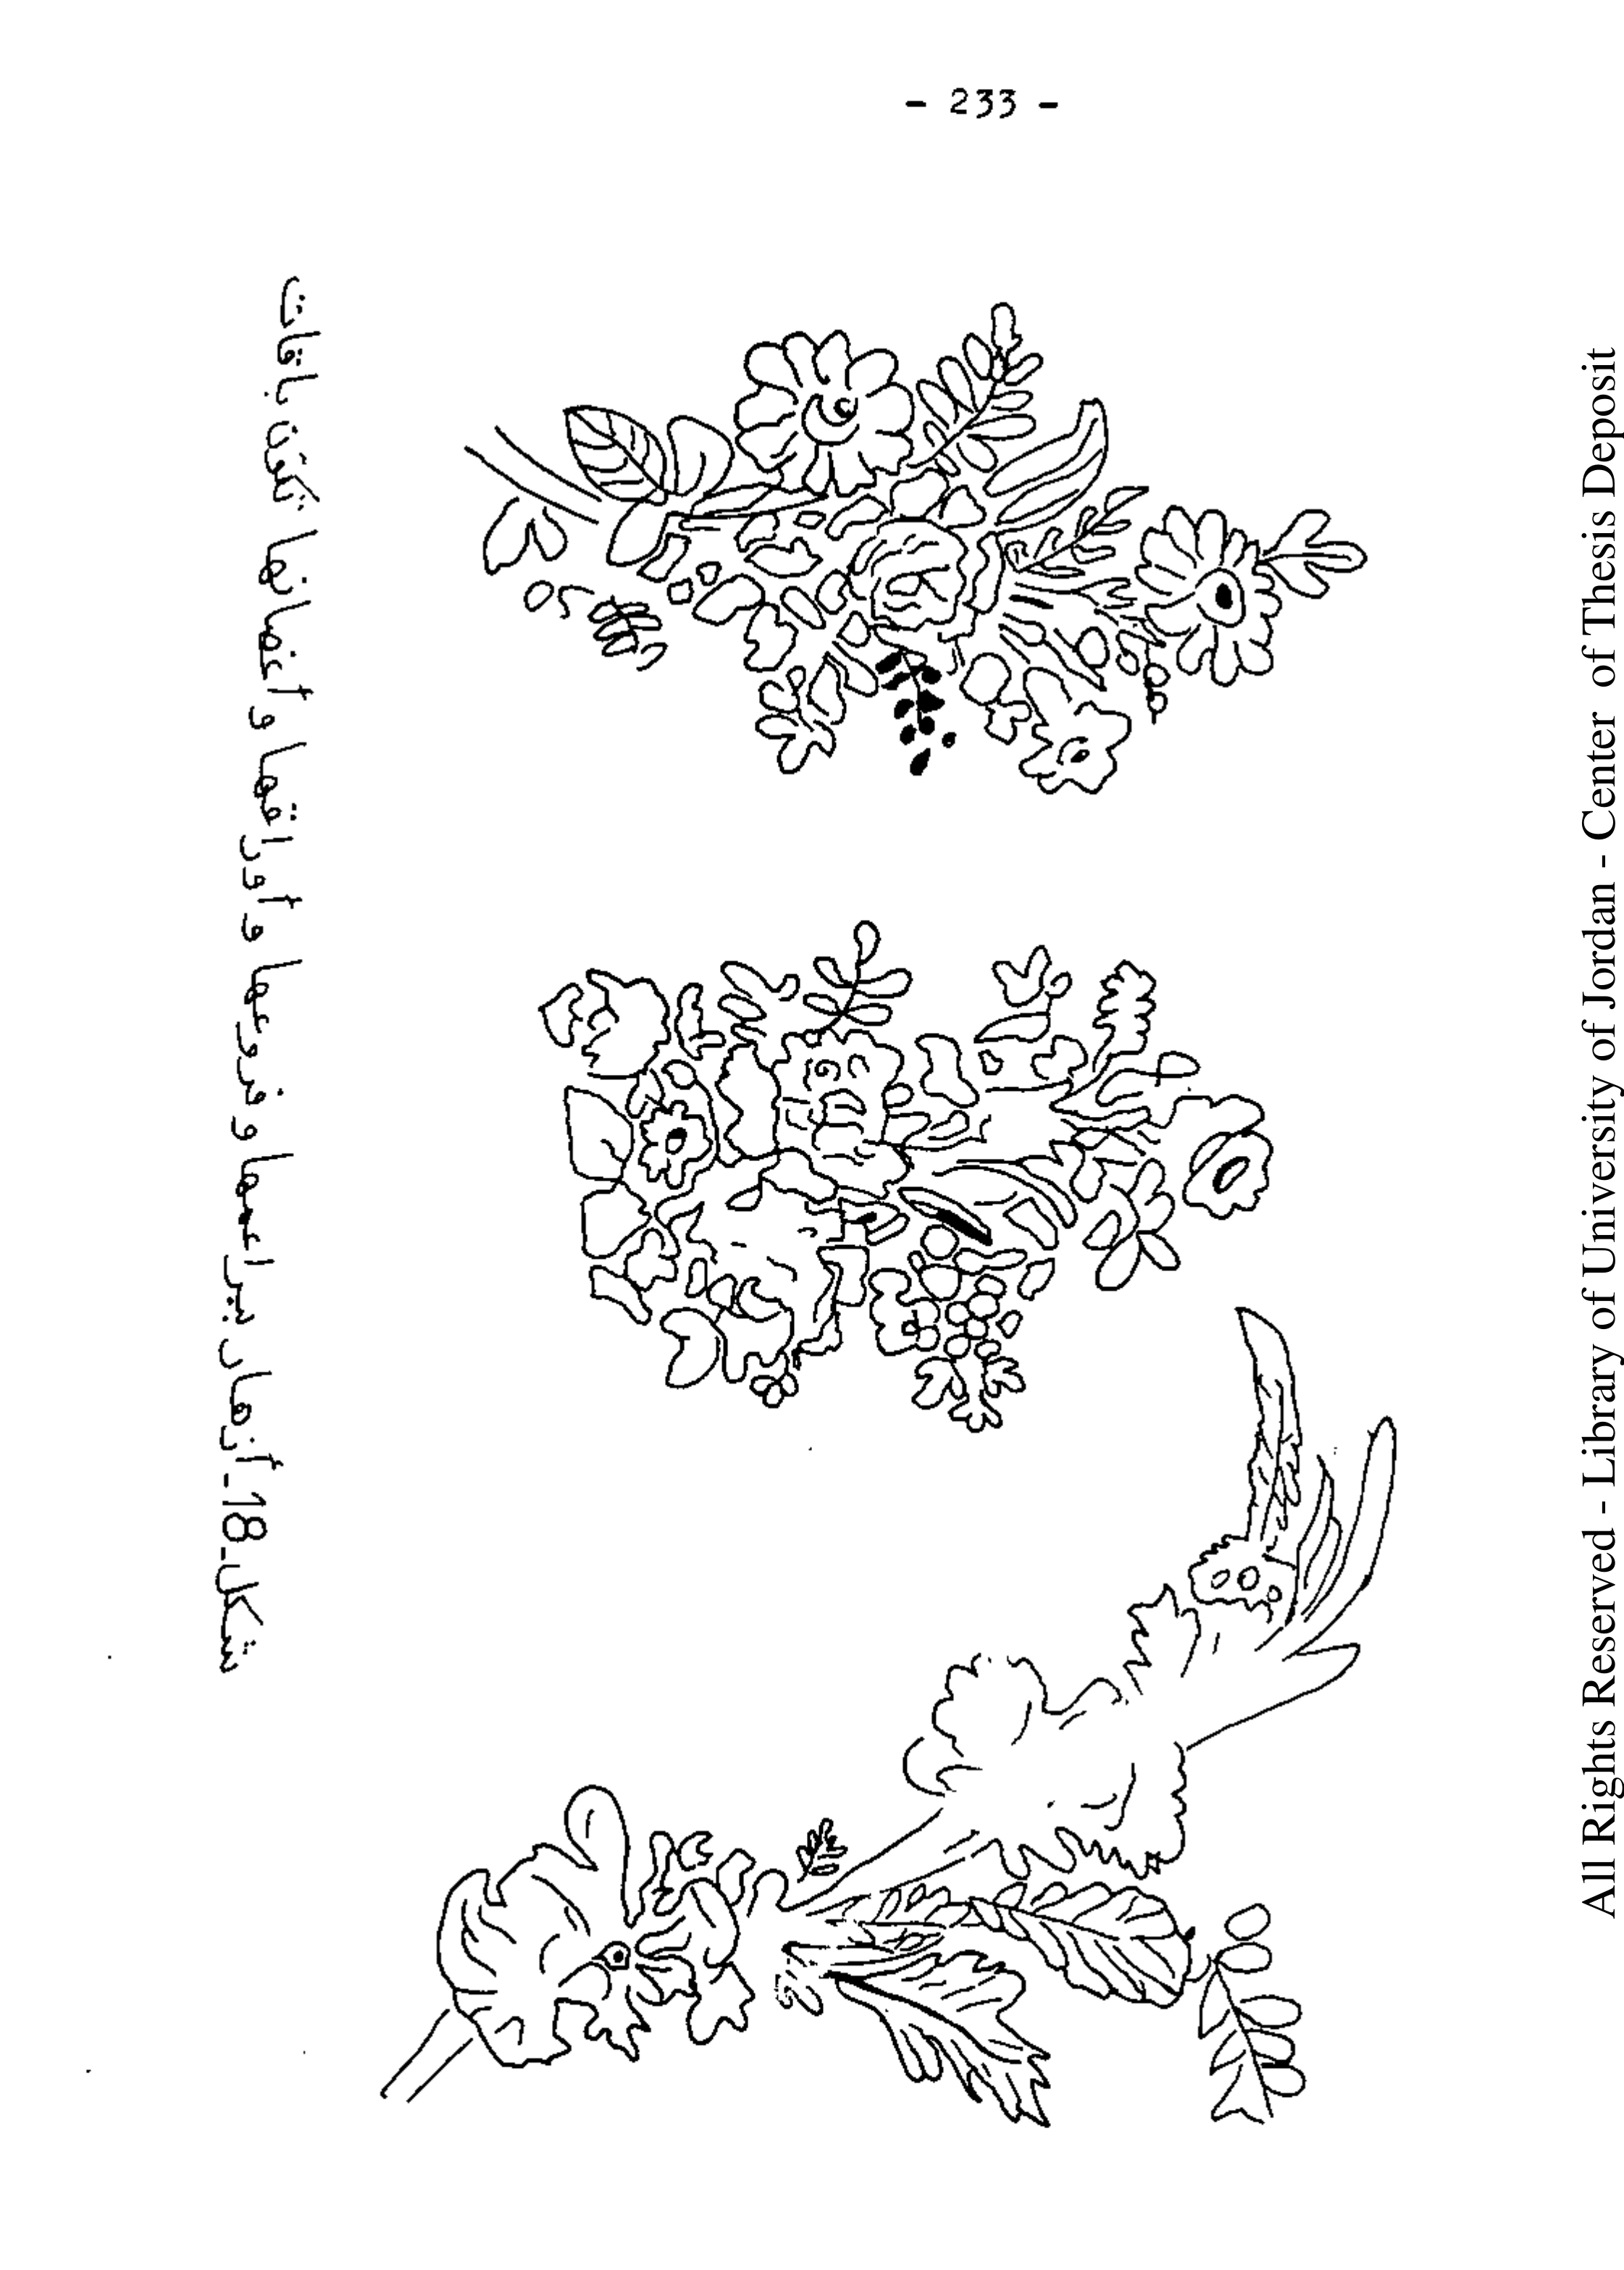 - 233 -
شكل-18- أزهار ببراعمها و فروعها و أوراقها و أغصانها تكون باقات
All Rights Reserved - Library of University of Jordan - Center of Thesis Deposit